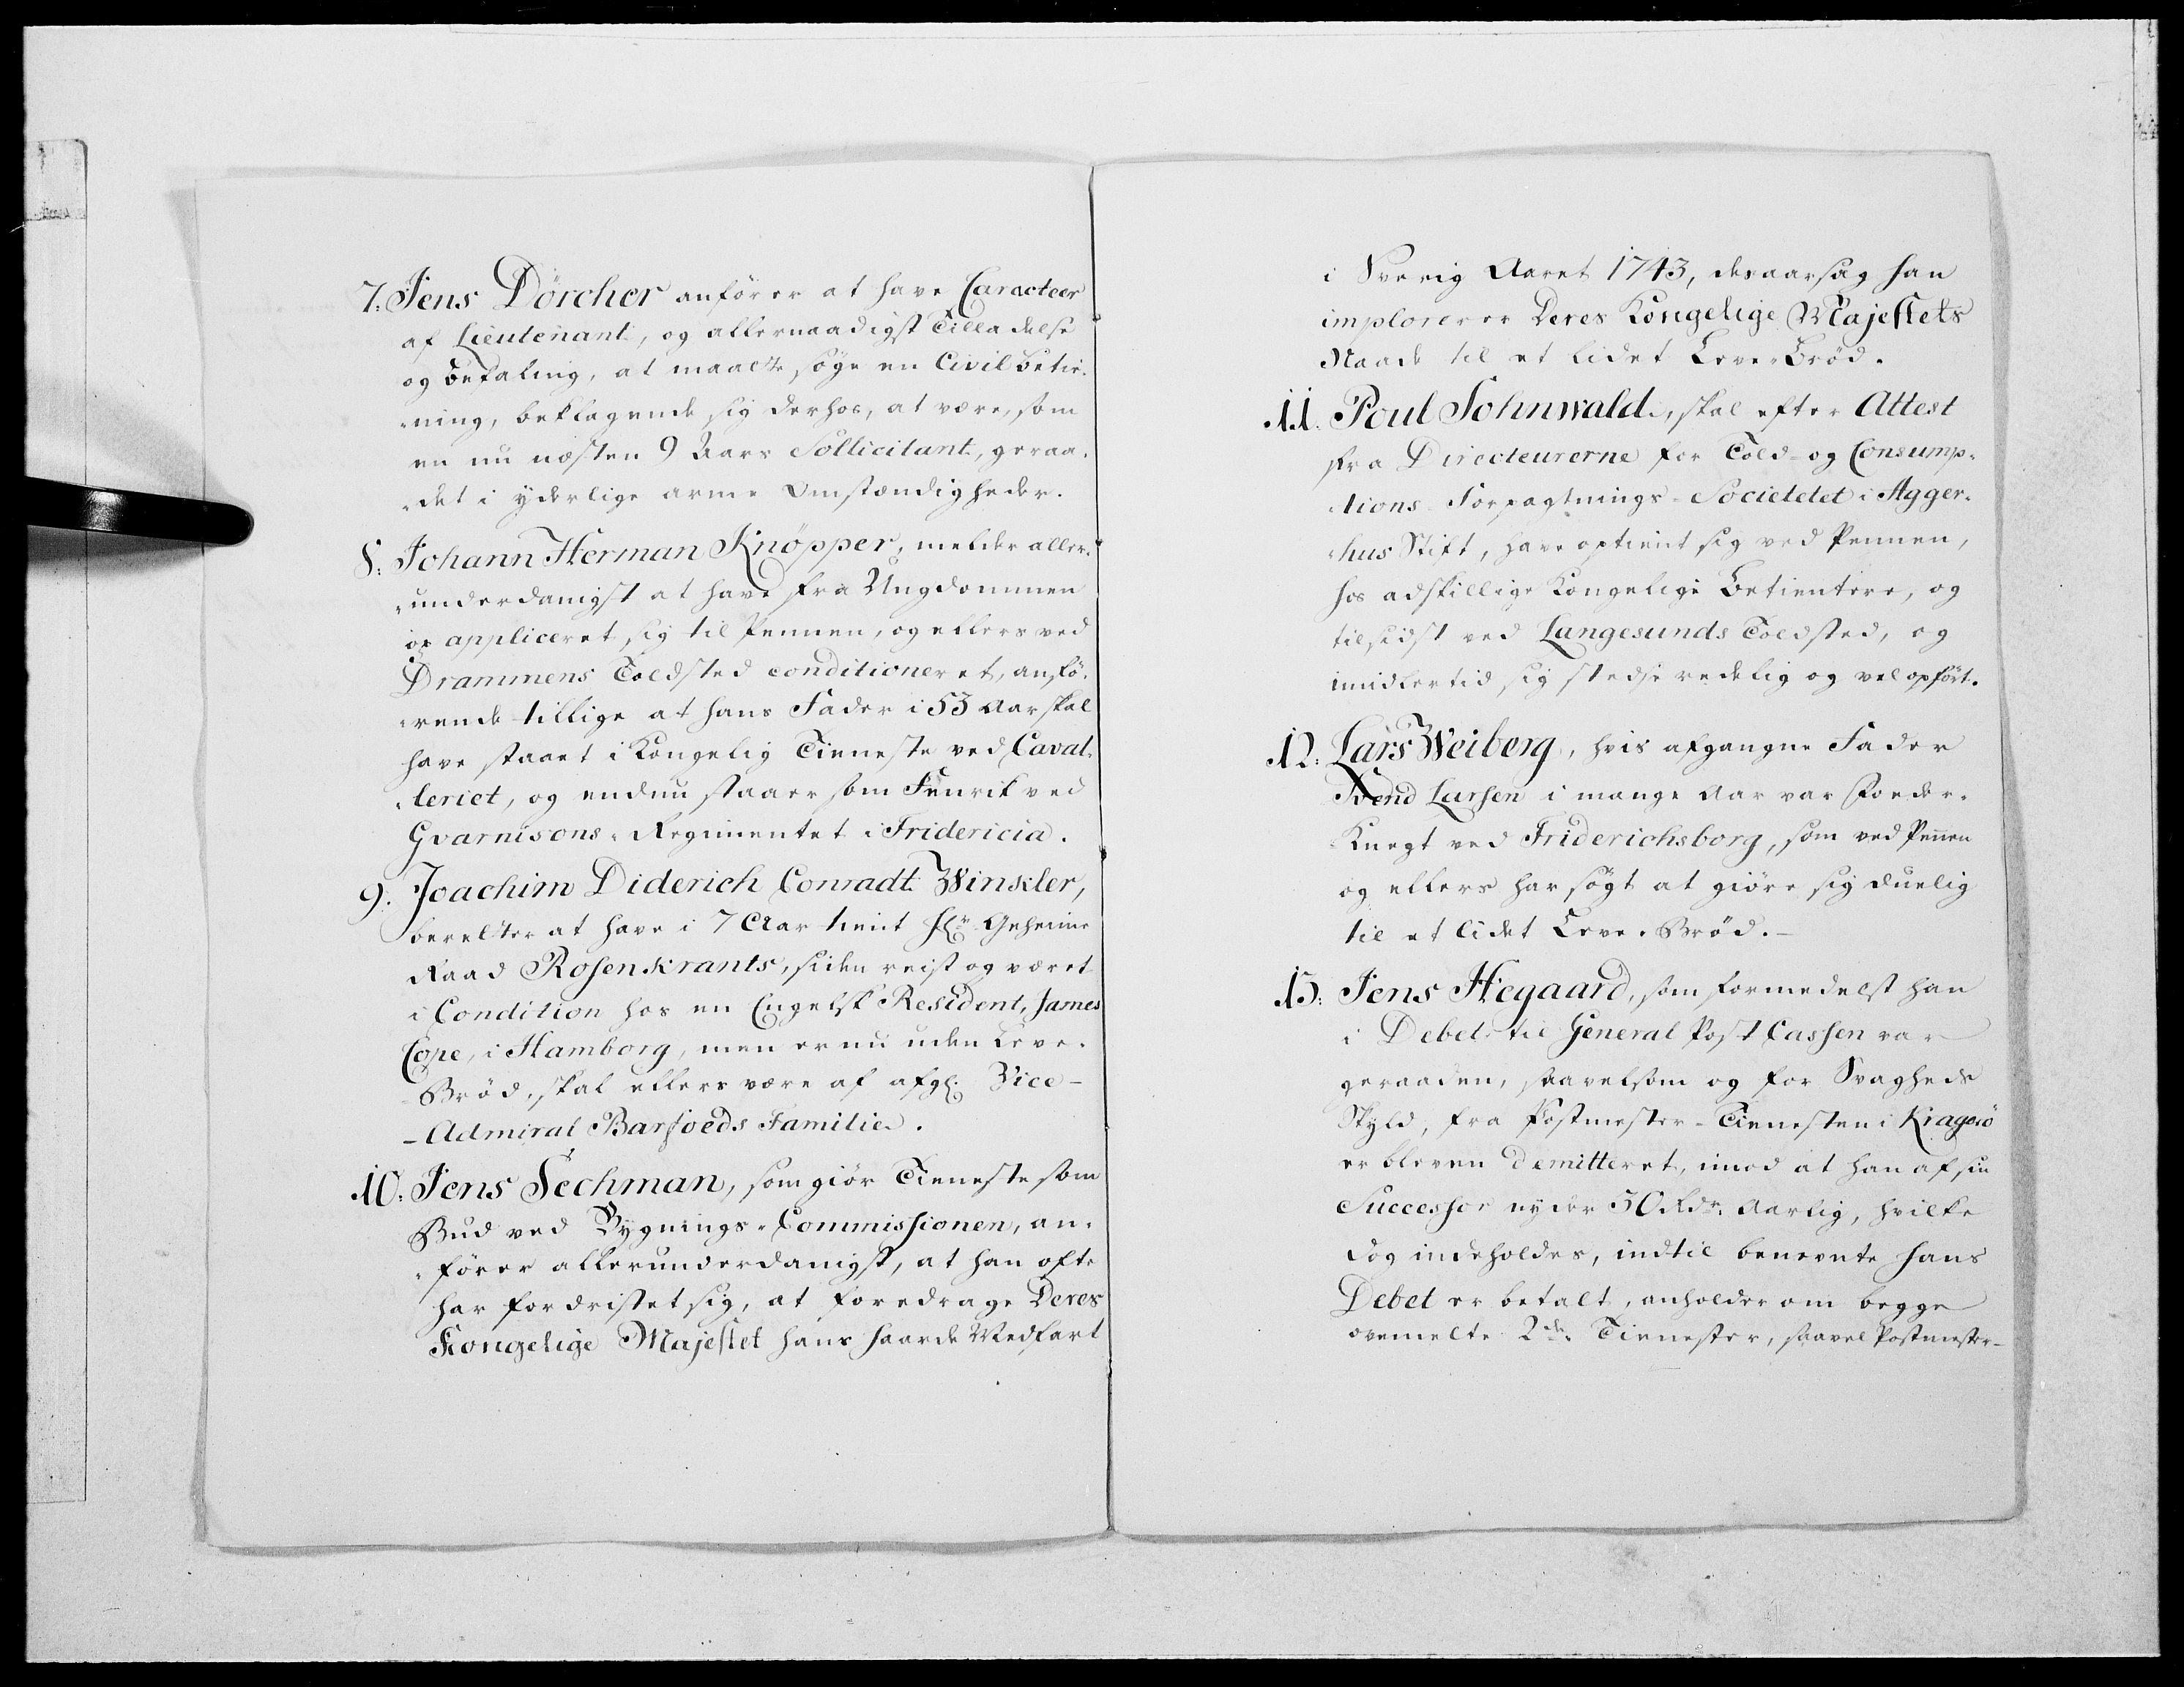 7. Jens Dörcher anförer at have Caracteer
af Lieutenant, og allernaadigst Tilladelse
og Befaling, at maatte söge en Civil betie-
-ning, beklagende sig derhos, at være, som
en nu næsten 9 Aars Sollicitant, geraa-
-det i yderlige arme Omstændigheder.
8. Johann Herman Knöpper, melder aller-
-underdanigst at have fra Ungdommen
op appliceret sig til Pennen, og ellers ved
Drammens Toldsted conditioneret, anfö-
-rende tillige at hans Fader i 53 Aar skal
have staaet i Kongelig Tieneste ved Caval-
-leriet, og endnu staaer som Fenrik ved
Gvarnisons-Regimentet i Fridericia.
9. Joachim Diderich Conradt Winkler,
beretter at have i 7 Aar tient Hr. Geheime
Raad Rosenkrants, siden reist og været
i Condition hos en Engelsk Resident, James
Cope, i Hamborg, men er nu uden Leve-
-Bröd, skal ellers være af afgl. Vice-
-Admiral Barfoeds Familie.
10. Jens Fechman, som giör Tieneste som
Bud ved Bygnings-Commissionen, an-
-förer allerunderdanigst, at han ofte
har fordristet sig, at foredrage Deres
Kongelige Majestet hans haarde Medfart
i Sverig Aaret 1743, desaarsag han
implorerer Deres Kongelige Majestets
Naade til et lidet Leve-Bröd.
11. Poul Sohnwald, skal efter Attest
fra Directeurerne for Told- og Consump-
-tions-Forpagtnings-Societetet i Agger-
-hus Stift, have optient sig ved Pennen,
hos adskillige Kongelige Betientere, og
tilsidst ved Langesunds Toldsted, og
imidlertid sig stedse redelig og vel opfört.
12. Lars Weiberg, hvis afgangne Fader
Svend Larsen i mange Aar var Foeder-
Knegt ved Friderichsborg, som ved Pennen
og ellers har sögt at giöre sig duelig
til et lidet Leve-Bröd.-
13. Jens Hegaard, som formedelst han
i Debet til General Post Cassen var
geraaden, saavelsom og for Svagheds
Skyld, fra Postmester-Tienesten i Krageröe
er bleven demitteret, imod at han af sin
Successor nyder 50 Rdr. Aarlig, hvilke
dog indeholdes, indtil benevnte hans
Debet er betalt, anholder om begge
ovenmelte 2de. Tienester, saavel Postmester-